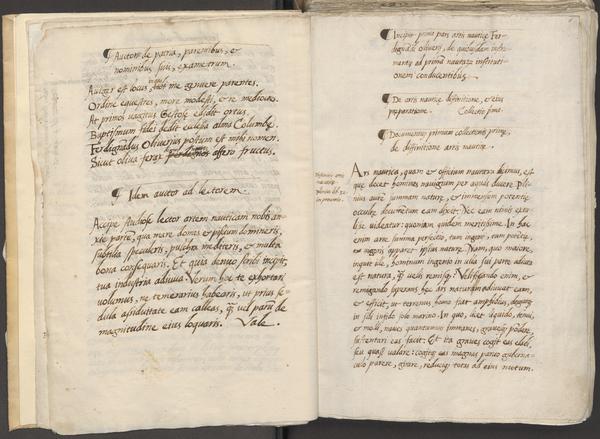 ¶ Auctor de patria, parentibus, et
nominibus suis, examerum.
Aviges est locus, hoc me genuere parentes.
Ordine equestres, more modesti, et re mediocres.
At primos vagitus ortus.
Baptismum fides dedit ecclesia alma Columbę.
Ferdignadus Oliverius postum est mihi nomen.
Sicut oliva ferax affero fructus.
¶ Idem auctor ad lectorem.
Accipe studiose lector artem nauticam nobis an-
xie partę, qua mare domes et ipsum domineris,
subtilia speculeris, pulchra mediteris, et multa
bona consequaris. Et quia denuo scribi incipit,
tua industria adiuva. Verum hoc te exhortari
volumus, ne temerarius habearis, ut prius se-
dula assiduitate eam calleas, quam vel parum de
magnitudine eius loquaris. Vale.
¶ Incipit prima pars artis nauticę Fer-
dignadi Oliverii, de quibusdam instru-
mentis ad primam nautarum instituti-
onem conducentibus.
¶ De artis nauticę diffinitione, et eius
pręparatione. Collectio prima.
¶ Documentum primum collectionis primę,
de diffinitione artis nauticę.
Ars nautica, quam et officium nautarum dicimus, est
que docet homines navigium per aquas ducere. Pli-
nius autem summam naturę, et immensum potentię
occultę documentum eam dixit. Nec eam nimis extu-
lisse videatur: quoniam quidem meritissime. In hac
enim arte summa perfectio, tum ingenii, tum poten-
tię magnis apparet ipsius naturę. Nam, quo maiore,
inquit ille, hominum ingenio in ulla sui parte adiuta
est natura, quam velis remisque? Velificando enim, et
remigando superamus. hec ars naturam adiuvat eam,
et efficit, ut terrenus homo fiat amphibius,
in sibi infido solo marino. In quo, licet liquido, tenui,
et molli, naves quantumvis immanes, gravesque pondere,
sustentari eas facit. Et ita graves cogit eas
seu quasi volare: cogitque eas magnas parvo guberna-
culo parere, girare, reducique totas ad eius nutum.